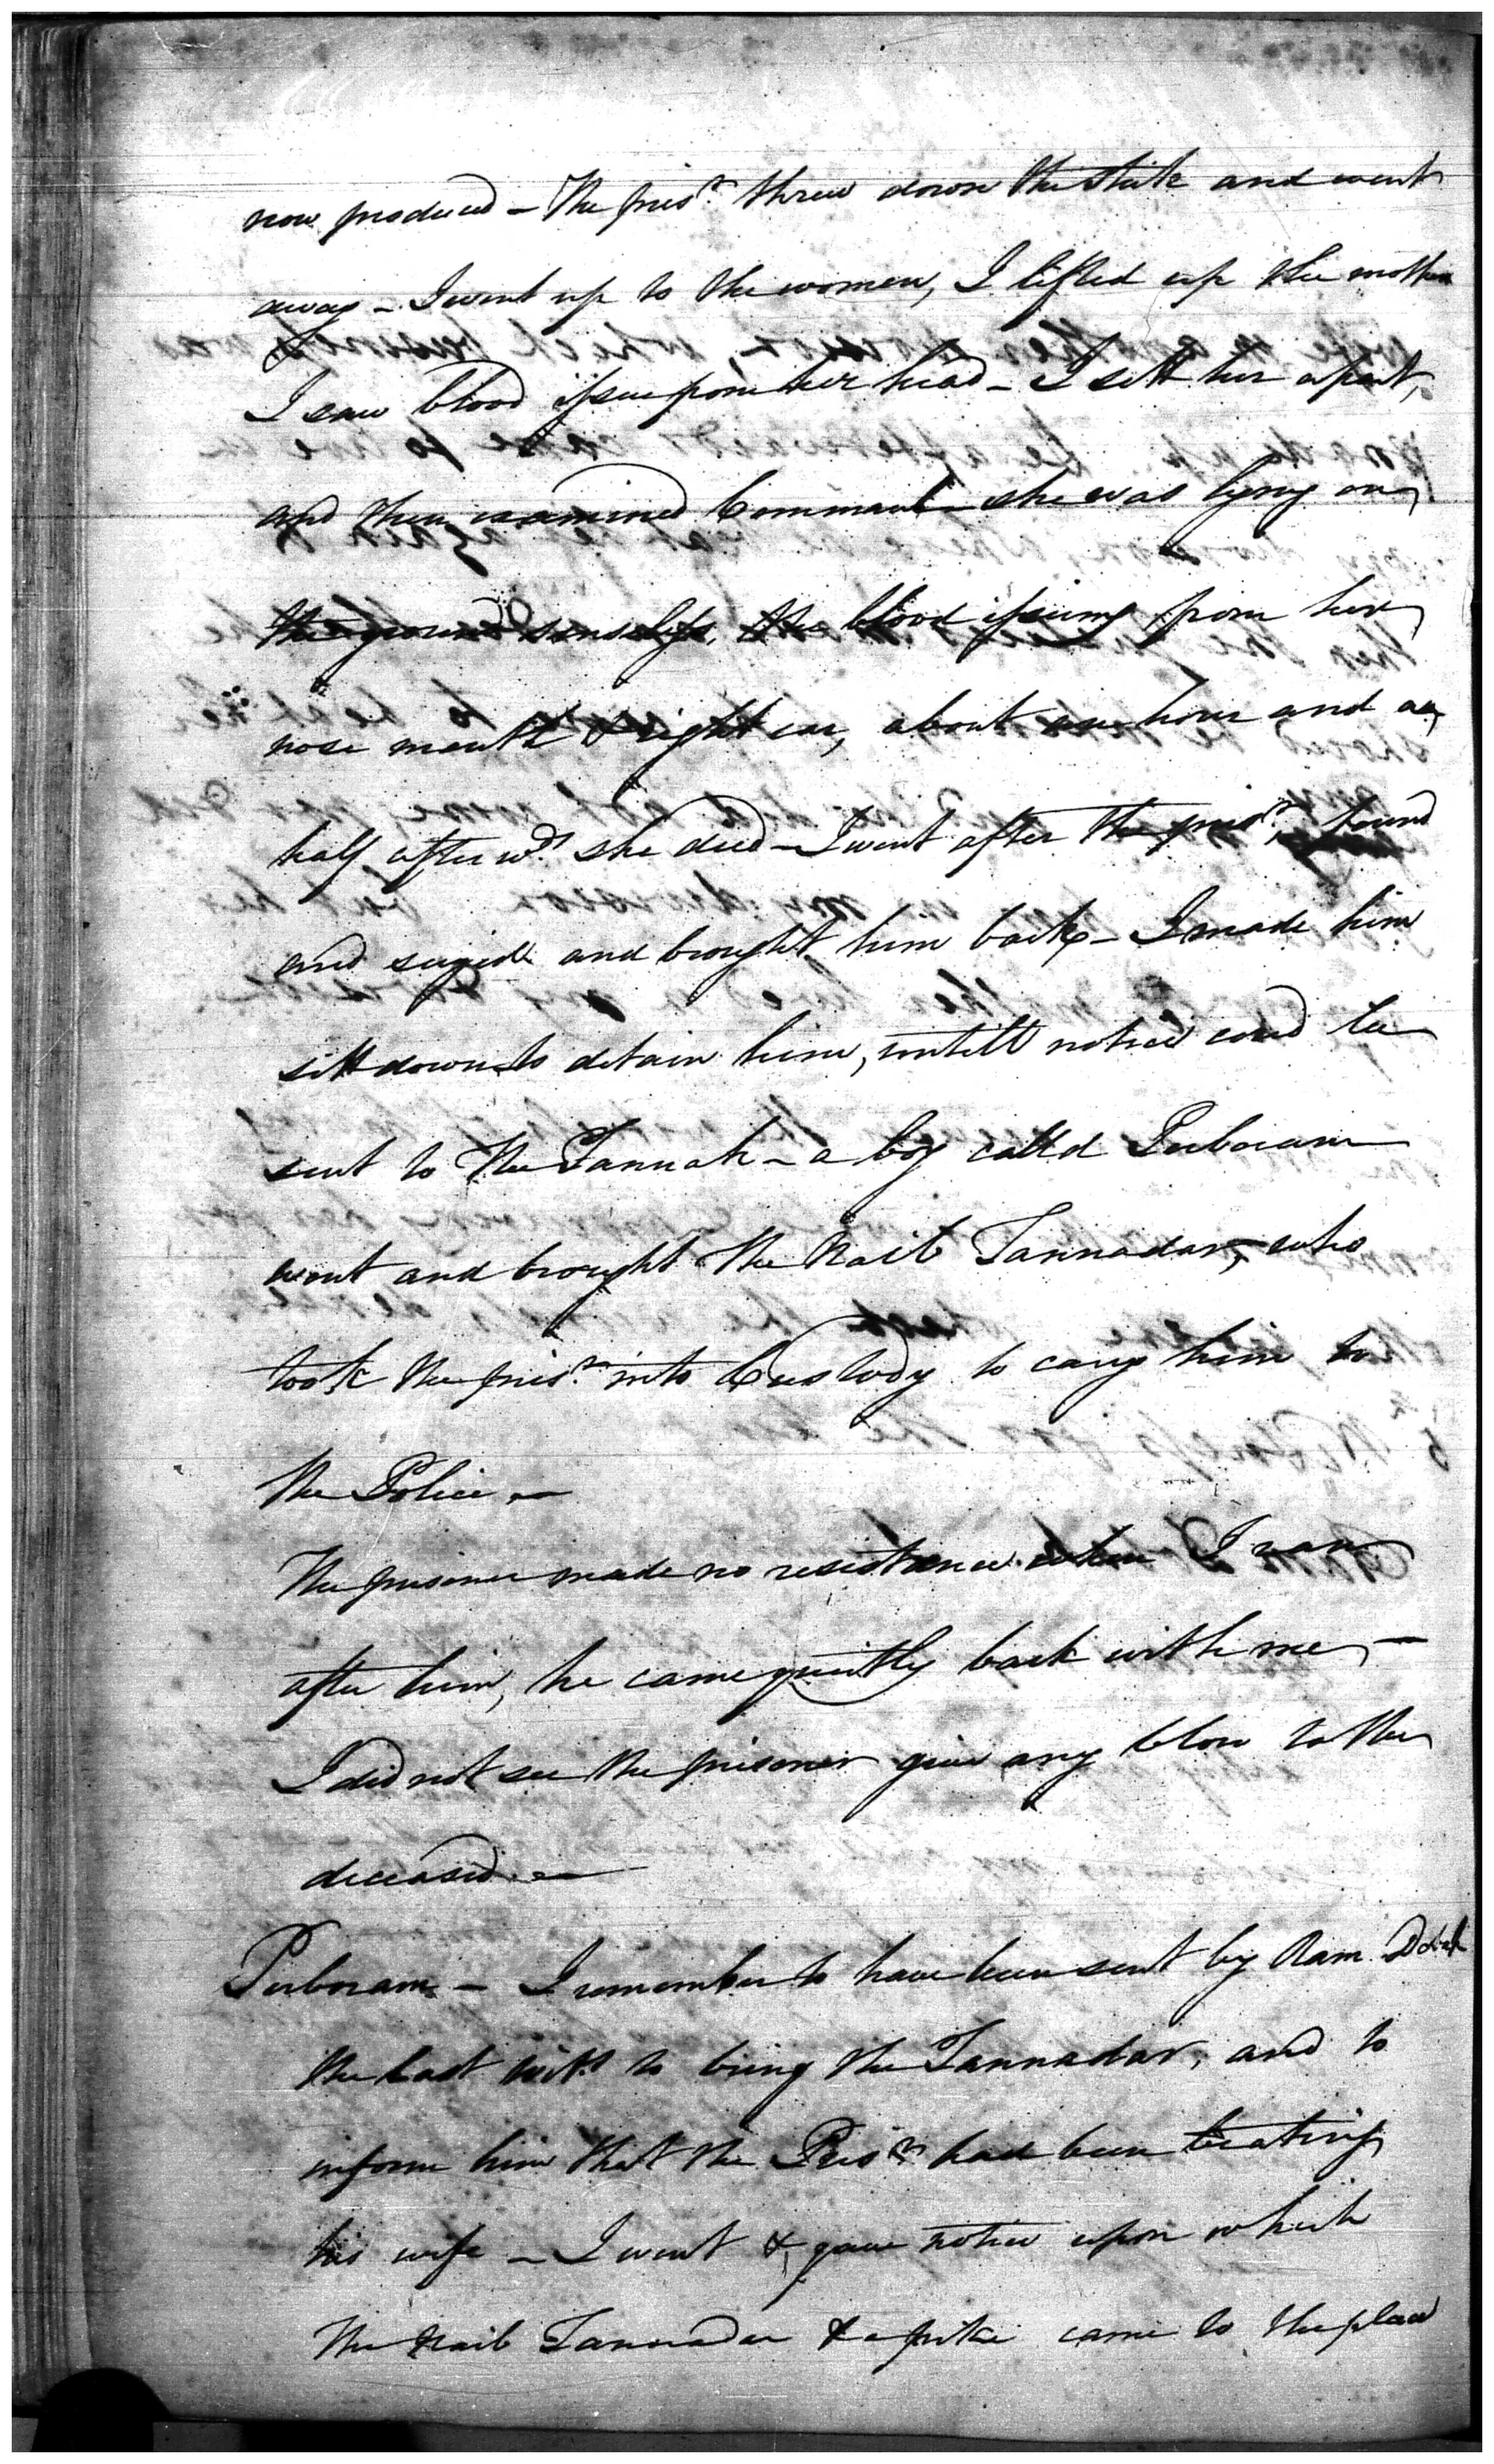 now produced – The pris.r threw down the stick and went
away – I went up to the women, I lifted up the mother
I saw blood issue from her head – I sett her apart,
and then examined she was lying on
the ground senseless, the blood issuing from her
nose mouth & right ear, about an hour and an
half afterw.ds she died – I went after the pris.r, found
and seized and brought him back – I made him
sitt down to detain him, untill notice coud be
sent to the Tannah – a boy called Perboram
went and brought the Naib Tannadar, who
took the pris.r into Custody to carry him to
the Police –
The prisoner made no resistance when I ran
after him, he came quietly back with me –
I did not see the prisoner give any blow to the
deceased –
Perboram – I remember to have been sent by Ram
the last witt.s to bring the Tannadar, and to
inform him that the Pris.r had been beating
his wife – I went & gave notice upon which
the Naib Tannadar & a pike came to the place